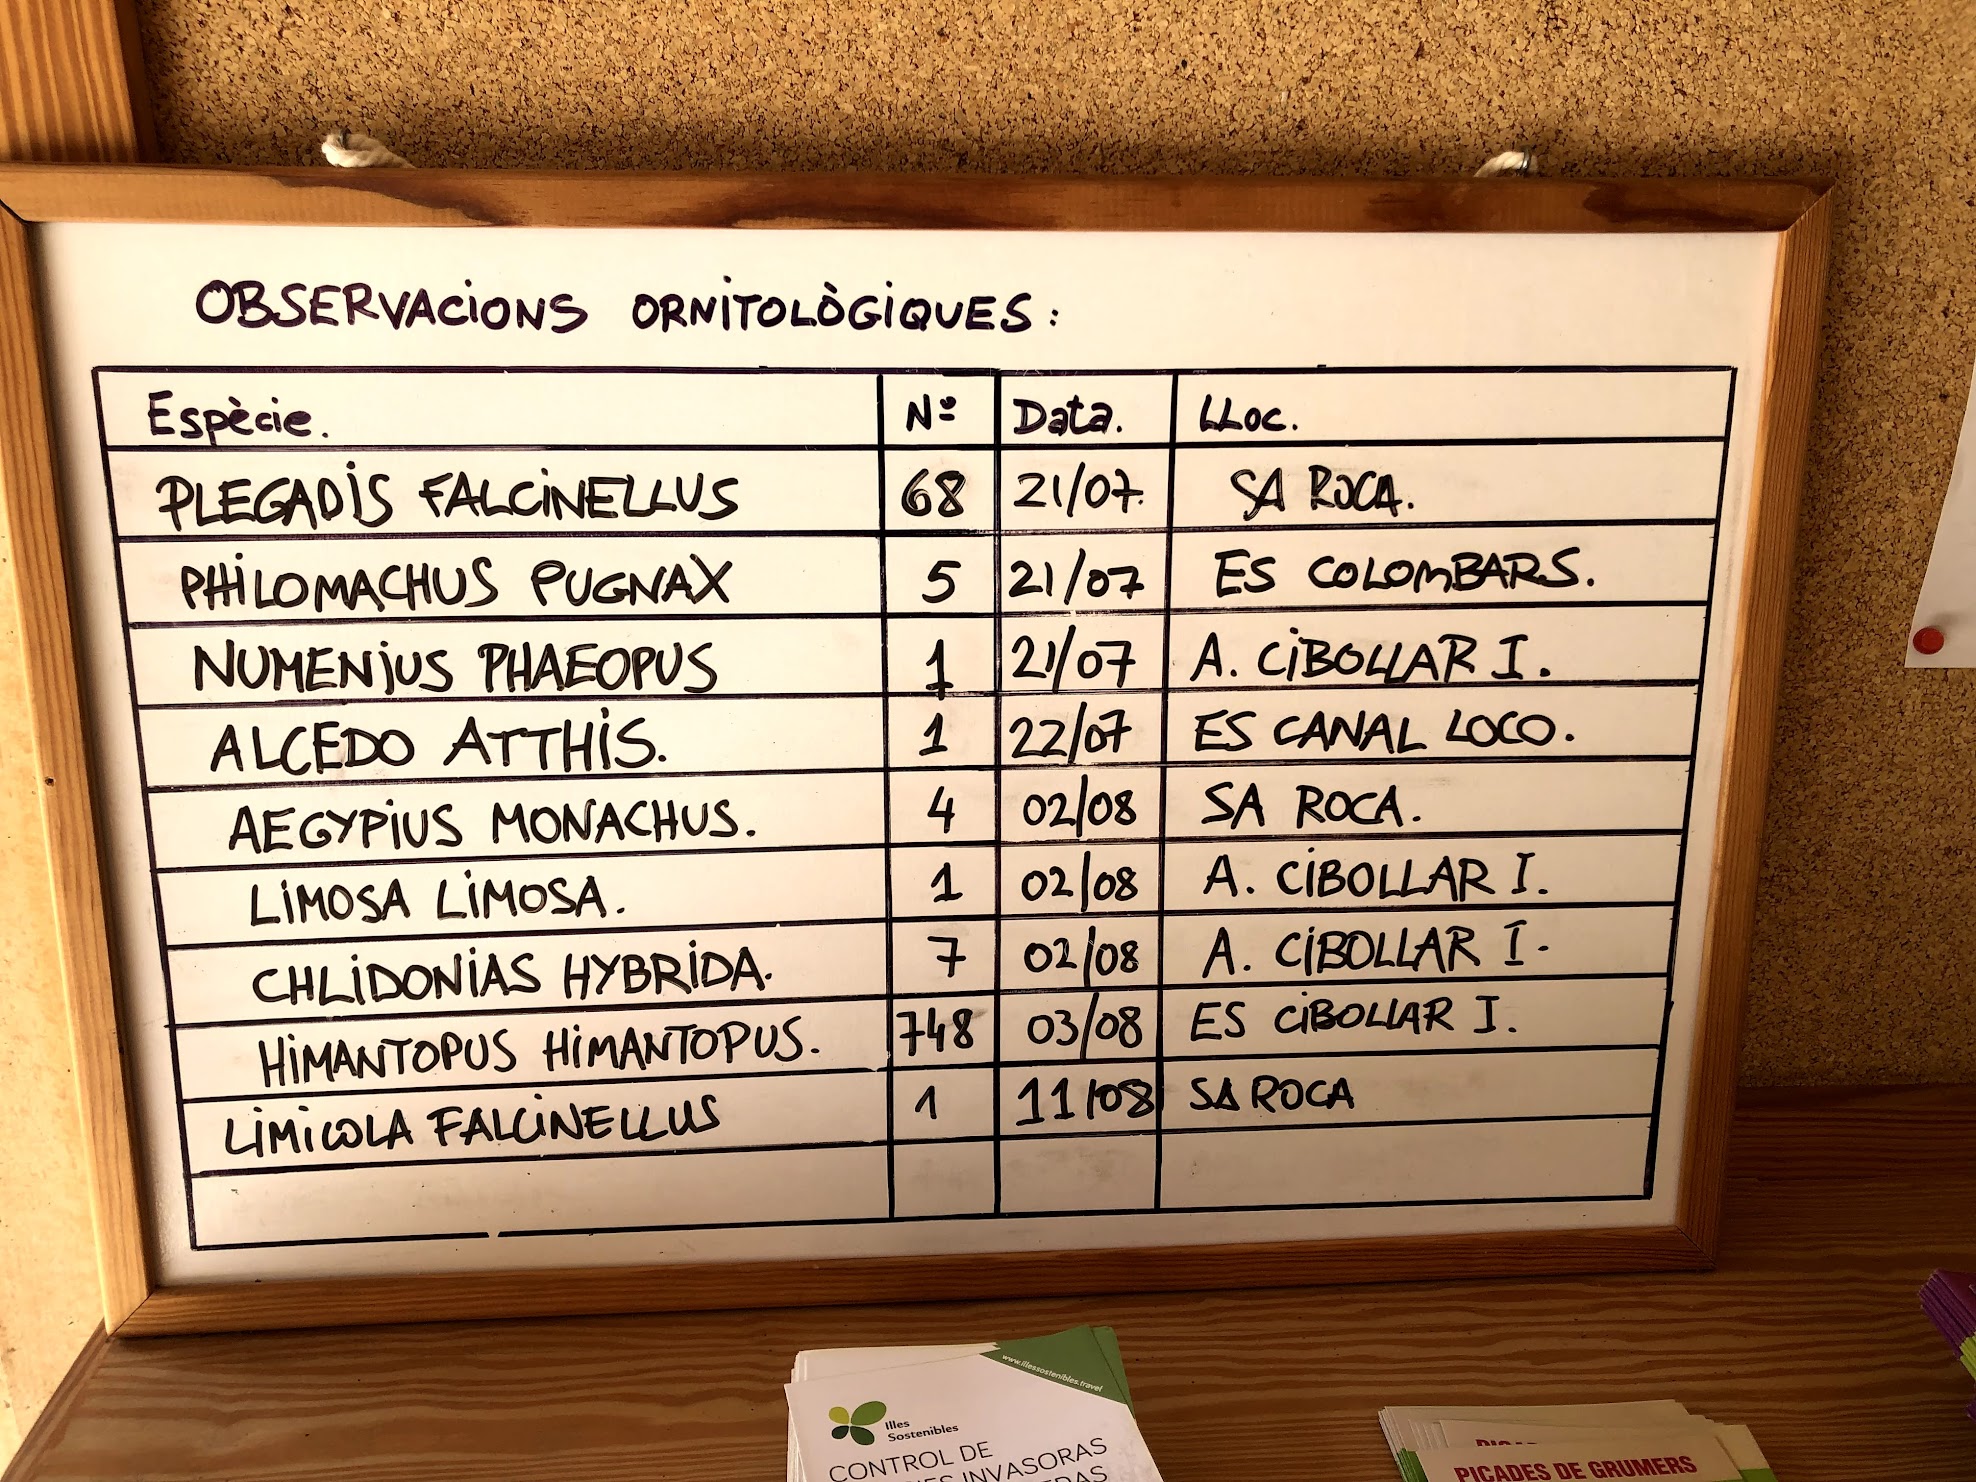 OBSERVACIONS ORNITOLÒGIQUES:
Espècie. Nº Data. LLoc.
PLEGADIS FALCINELLUS 68 21/07. SA ROCA.
PHILOMACHUS PUGNAX 5 21/07 ES COLOMBARS.
NUMENIUS PHAEOPUS 1 21/07 A. CIBOLLAR I.
ALCEDO ATTHIS. 1 22/07 ES CANAL LOCO.
AEGYPIUS MONACHUS. 4 02/08 SA ROCA.
LIMOSA LIMOSA. 1 02/08 A. CIBOLLAR I.
CHLIDONIAS HYBRIDA. 7 02/08 A. CIBOLLAR I.
HIMANTOPUS HIMANTOPUS. 748 03/08 ES CIBOLLAR I.
LIMICOLA FALCINELLUS 1 11/08 SA ROCA
www.illessostenibles.travel
Illes
Sostenibles
CONTROL DE
INVASORAS
PICADES DE GRUMERS